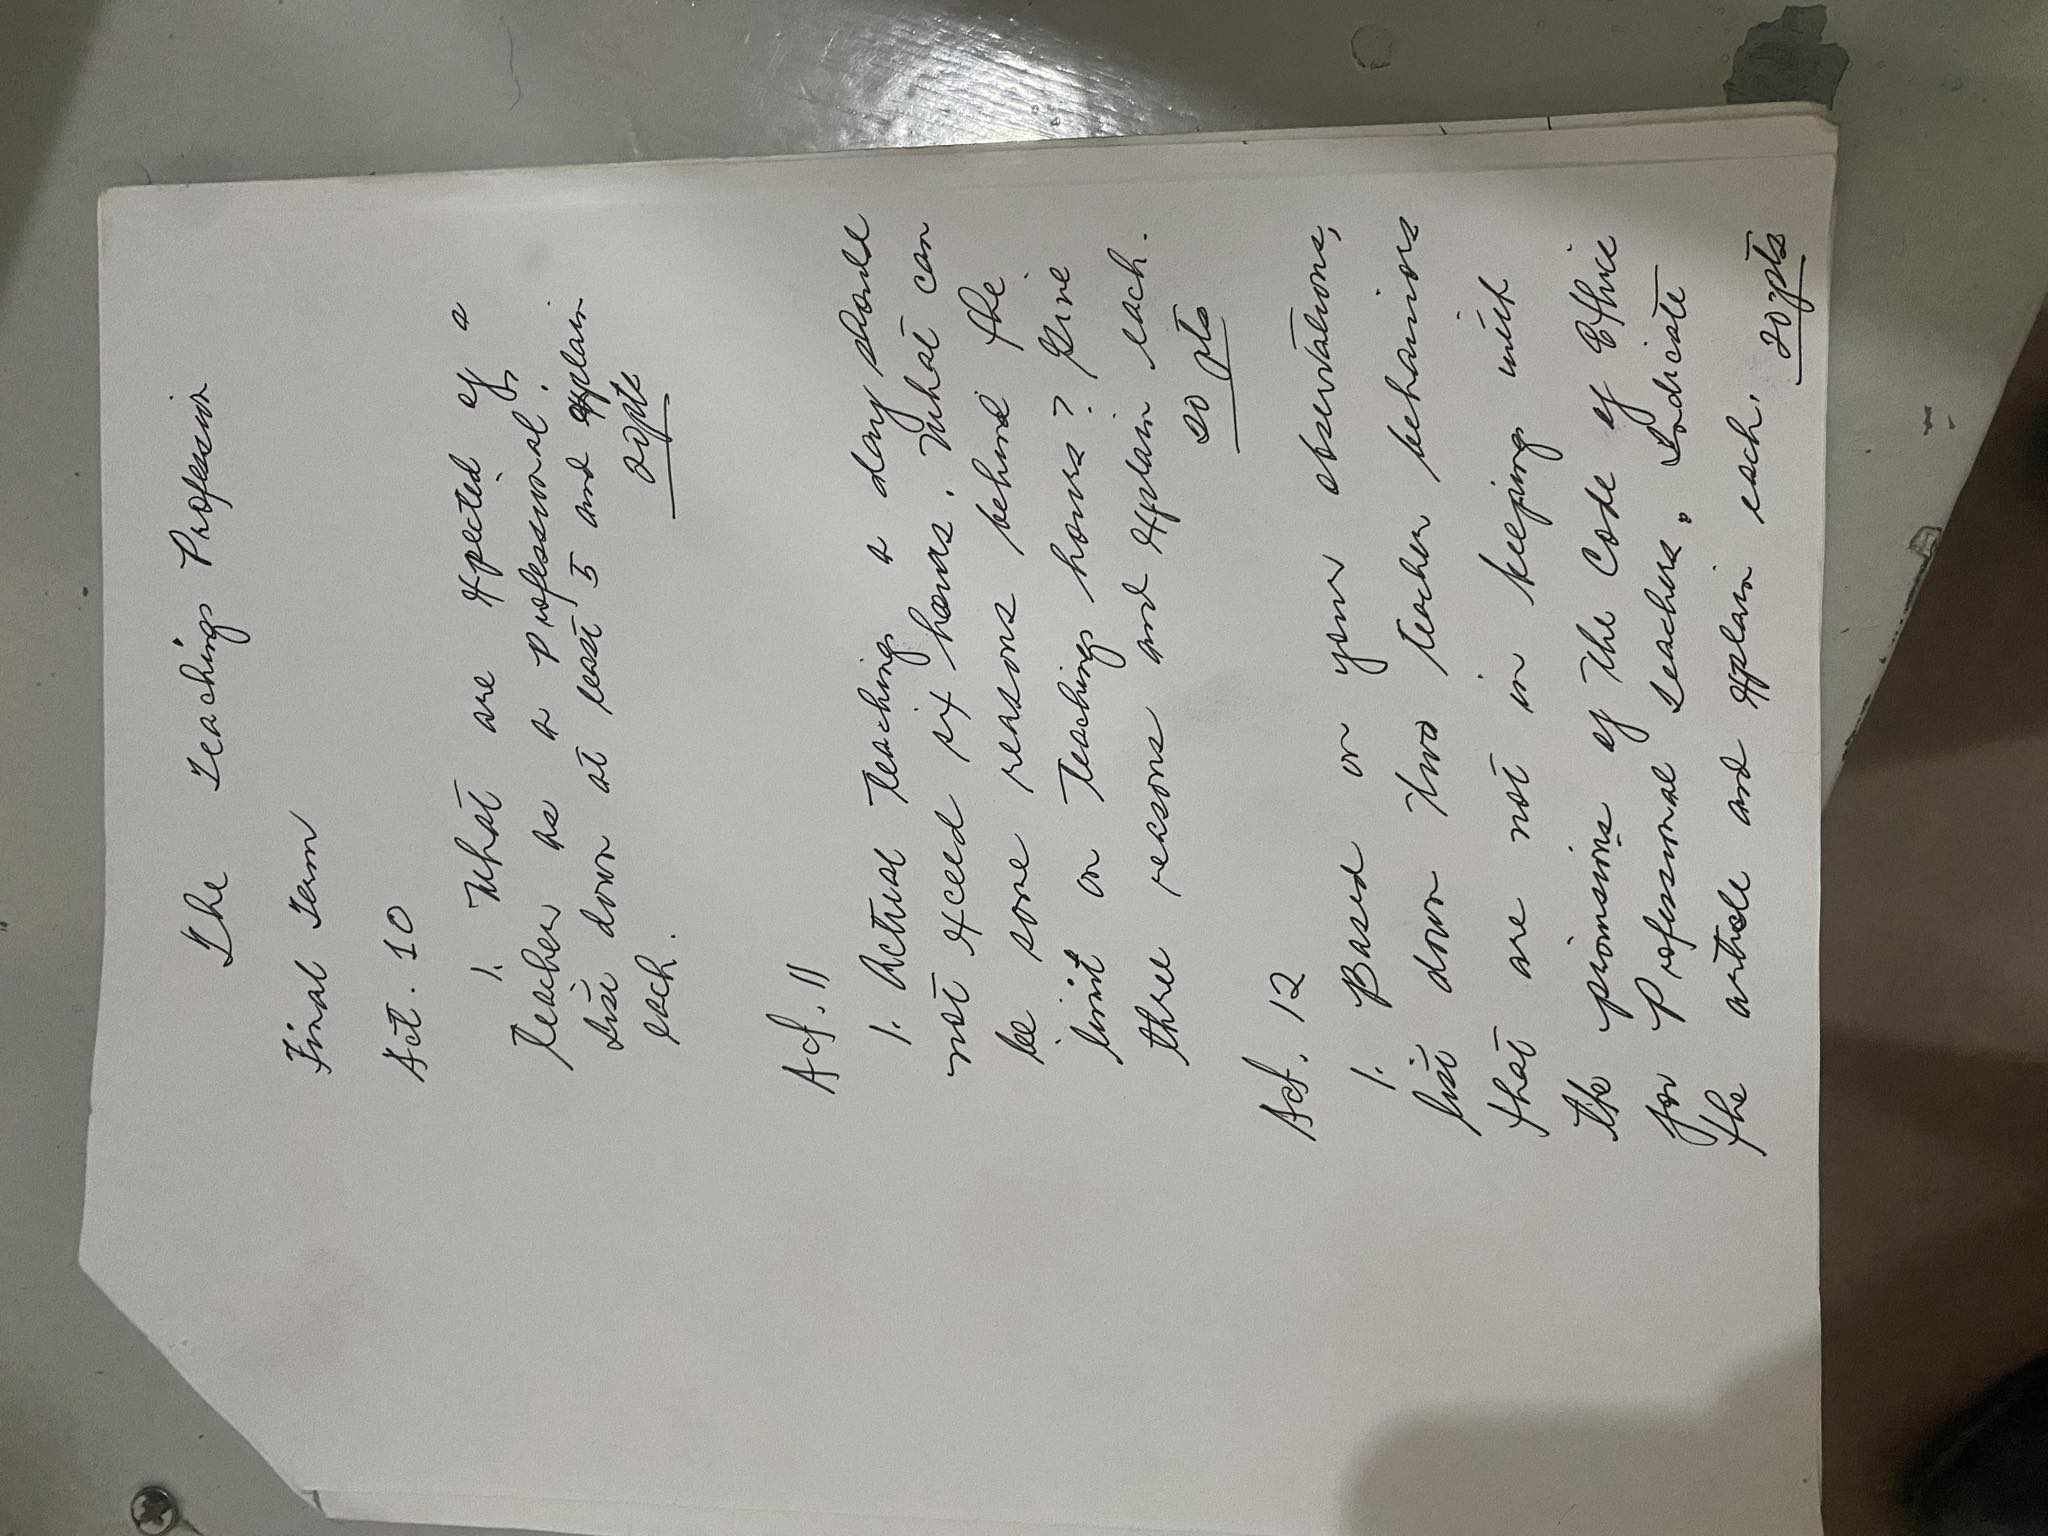 The Teaching Profession
Final Term
Act. 10
1. What are expected of a
teacher as a professional?
List down at least 5 and explain
each. 20pts
Act. 11
1. Actual teaching a day should
not exceed six hours. What can
be some reasons behind the
limit on teaching hours? Give
three reasons and explain each.
20 pts
Act. 12
1. Based on your observations,
list down two teacher behaviors
that are not in keeping with
the provisions of the Code of Ethics
for Professional Teachers. Indicate
the article and explain each.
20pts